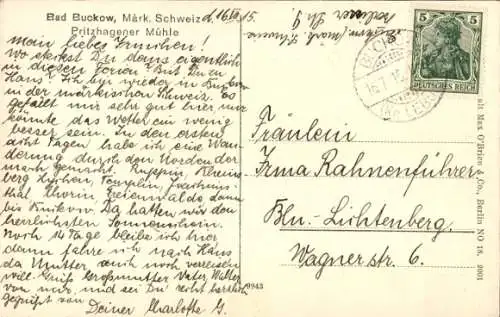 Bad Buckow, Märk. Schweiz d. 16. 15.
Pritzhagener Mühle
Mein liebes Irmchen!
Wo steckst Du denn eigentlich
in diesen Ferien? Bist Du zu
Haus? Ich bin wieder in Buckow
in der märkischen Schweiz. Es
gefällt mir sehr gut hier nur
könnte das Wetter ein wenig
besser sein. In den ersten
acht Tagen habe ich eine Wan-
derung durch den Norden der
Mark gemacht. Ruppin, Rheins-
berg
Chorin Freienwalde dann
bis Buckow. Da hatten wir den
herrlichsten Sonnenschein.
Noch 14 Tage bleibe ich hier
dann fahre ich nach Haus
da Mutter auch noch verreisen
will. Grüß Großmutter Vater, Mutter
von mir, und sei Du recht herzlich
gegrüßt von Deiner Charlotte G.
5 5
DEUTSCHES REICH
Fräulein
Irma Rahnenführer
Bln.-Lichtenberg.
Wagnerstr. 6.
9943
Max O'Brien & Co., Berlin NO 18. 9901